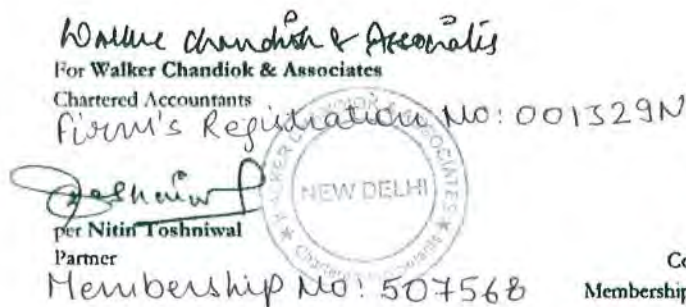 Walker Chandiok & Associates
For Walker Chandiok & Associates
Chartered Accountants
Firm's Registration No: 001329N
WALKER CHANDIOK & ASSOCIATES
NEW DELHI
Chartered Accountants
per Nitin Toshniwal
Partner
Membership No: 507568
Co
Membership